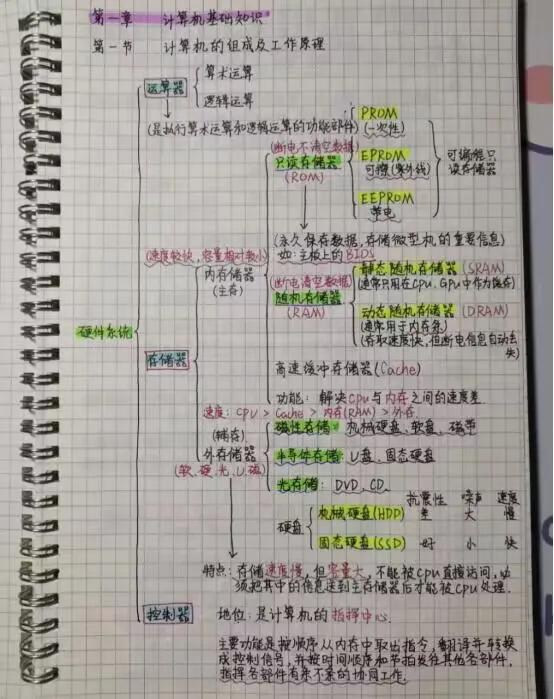 第一章 计算机基础知识
第一节 计算机的组成及工作原理
运算器
算术运算
逻辑运算
(是执行算术运算和逻辑运算的功能部件)
PROM
(一次性)
(断电不清空数据)
只读存储器
(ROM)
EPROM
可擦(紫外线)
可编程只
读存储器
EEPROM
带电
(永久保存数据,存储微型机的重要信息)
如:主板上的BIOS
(速度较快,容量相对较小)
内存储器
(主存)
(断电清空数据)
随机存储器
(RAM)
静态随机存储器(SRAM)
(通常只用在CPU、GPU中作为缓存)
动态随机存储器(DRAM)
(通常用于内存条)
(存取速度快,但断电信息自动丢
失)
硬件系统
存储器
高速缓冲存储器(Cache)
功能:解决CPU与内存之间的速度差
速度:CPU > Cache > 内存(RAM) > 外存
(辅存)
外存储器
(软、硬、光、U、磁)
磁性存储:机械硬盘、软盘、磁带
半导体存储:U盘、固态硬盘
光存储:DVD、CD
抗震性 噪声 速度
硬盘
机械硬盘(HDD) 差 大 慢
固态硬盘(SSD) 好 小 快
特点:存储速度慢,但容量大,不能被CPU直接访问,必
须把其中的信息送到主存储器后才能被CPU处理.
控制器
地位:是计算机的指挥中心.
主要功能是按顺序从内存中取出指令,翻译并转换
成控制信号,并按时间顺序和节拍发往其他各部件,
指挥各部件有条不紊的协同工作.